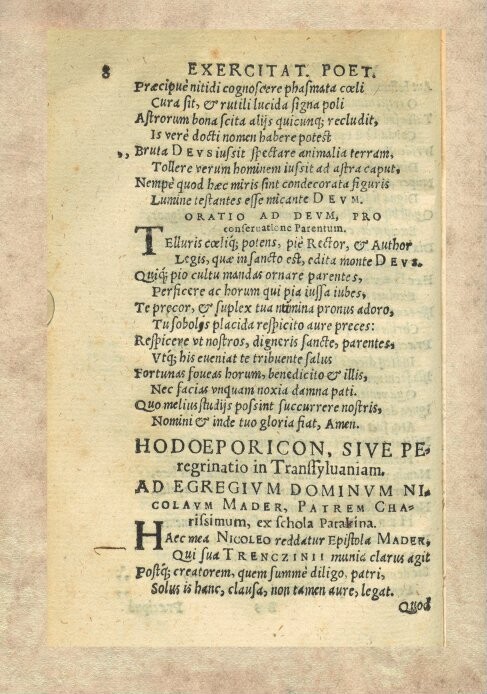 8 EXERCITAT. POET.
Præcipuè nitidi cognoscere phasmata cœli
Cura sit, & rutili lucida signa poli
Astrorum bona scita alijs quicunq; recludit,
Is verè docti nomen habere potest
,, Bruta DEVS iussit spectare animalia terram,
Tollere verum hominem iussit ad astra caput,
Nempè quod hæc miris sint condecorata figuris
Lumine testantes esse micante DEVM.
ORATIO AD DEVM, PRO
conseruatione Parentum.
Telluris cœliq; potens, piè Rector, & Author
Legis, quæ in sancto est, edita monte DEVS.
Quiq; pio cultu mandas ornare parentes,
Perficere ac horum qui pia iussa iubes,
Te precor, & suplex tua numina pronus adoro,
Tu sobolis placida respicito aure preces:
Respicere vt nostros, digneris sancte, parentes,
Vtq; his eueniat te tribuente salus
Fortunas foueas horum, benedicito & illis,
Nec facias vnquam noxia damna pati.
Quo melius studijs possint succurrere nostris,
Nomini & inde tuo gloria fiat, Amen.
HODOEPORICON, SIVE PE-
regrinatio in Transsyluaniam.
AD EGREGIVM DOMINVM NI-
COLAVM MADER, PATREM CHA-
rissimum, ex schola Patakina.
Haec mea NICOLEO reddatur Epistola MADER,
Qui sua TRENCZINII munia clarus agit
Postq; creatorem, quem summè diligo, patri,
Solus is hanc, clausa, non tamen aure, legat.
Quod